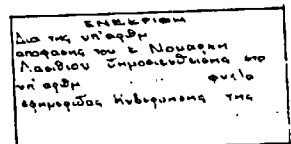 ΕΝΕΚΡΙΘΗ
Δια της υπ' αριθμ
αποφασης του κ Νομαρχη
Λασιθιου δημοσιευθεισης στο
υπ' αριθμ φυλλο
εφημεριδας Κυβερνησης της